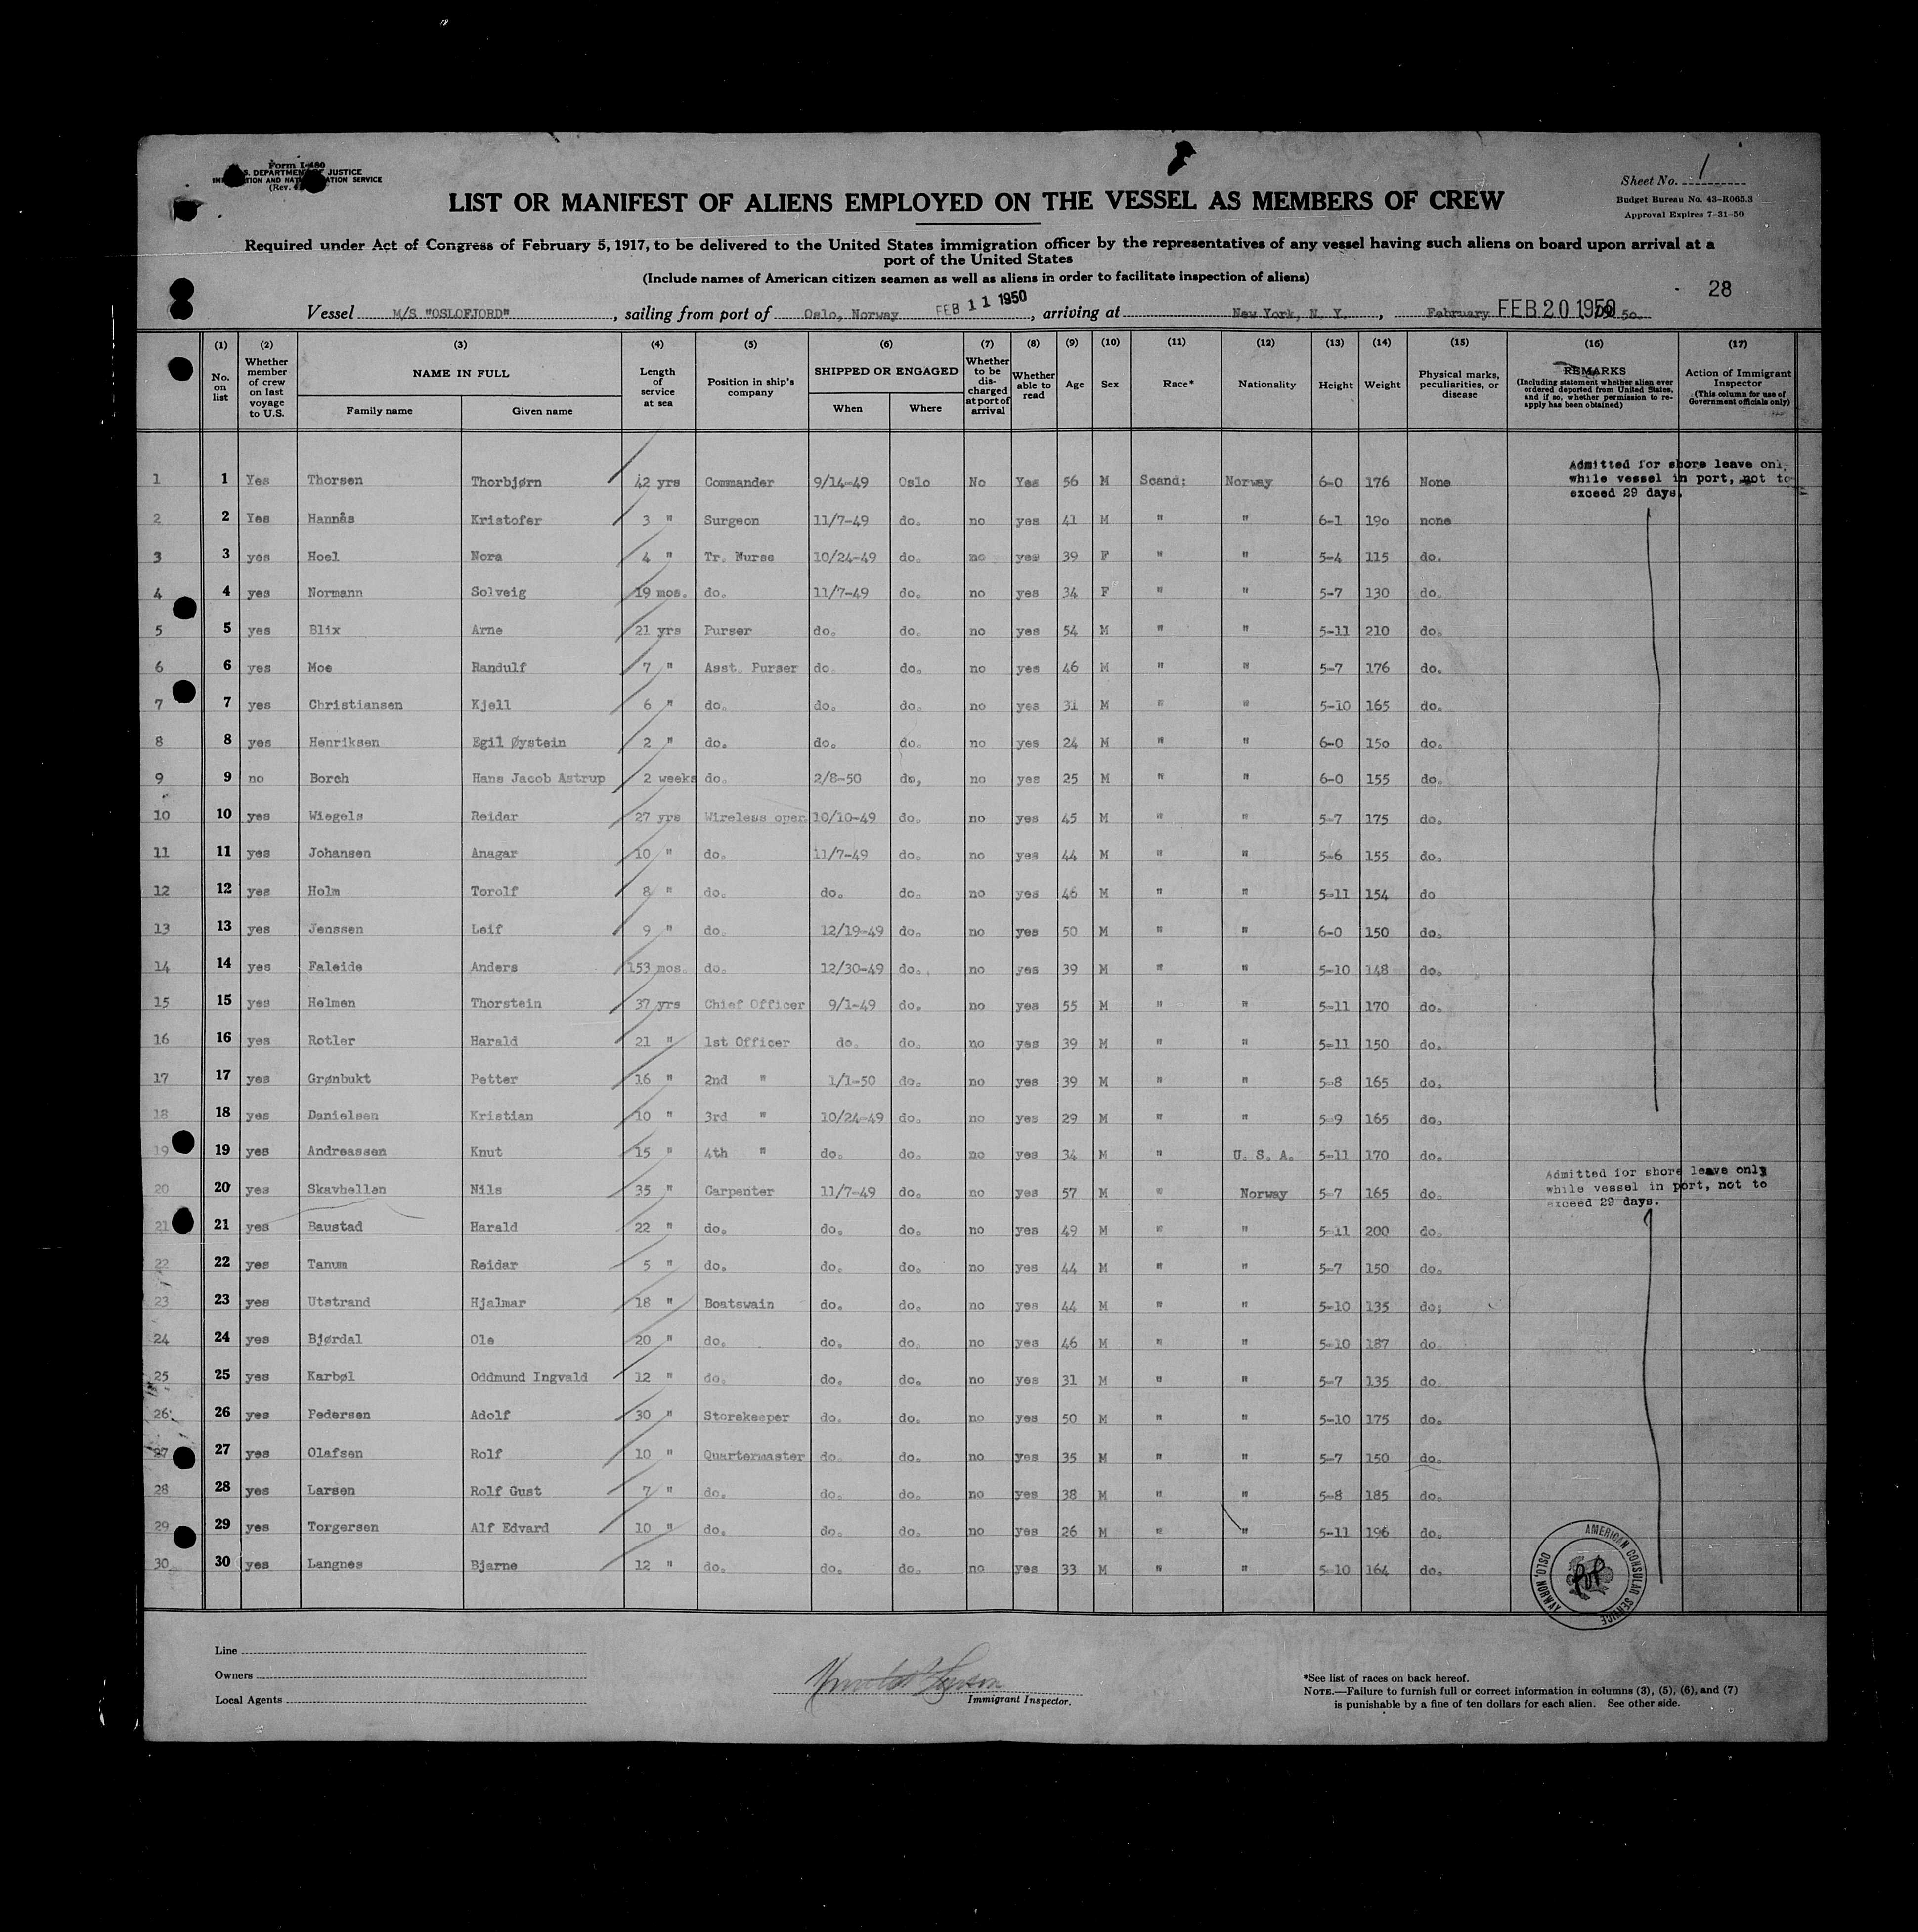 Form I-480
U.S. DEPARTMENT OF JUSTICE
IMMIGRATION AND NATURALIZATION SERVICE
(Rev.
Sheet No. 1
Budget Bureau No. 43-R065.3
Approval Expires 7-31-50
LIST OR MANIFEST OF ALIENS EMPLOYED ON THE VESSEL AS MEMBERS OF CREW
Required under Act of Congress of February 5, 1917, to be delivered to the United States immigration officer by the representatives of any vessel having such aliens on board upon arrival at a
port of the United States
(Include names of American citizen seamen as well as aliens in order to facilitate inspection of aliens)
28
Vessel M/S "OSLOFJORD", sailing from port of Oslo, Norway FEB 11 1950, arriving at New York, N. Y., February FEB 20 1950 50.
(1) (2) (3) (4) (5) (6) (7) (8) (9) (10) (11) (12) (13) (14) (15) (16) (17)
No. on list
Whether member of crew on last voyage to U.S.
NAME IN FULL
Family name Given name
Length of service at sea
Position in ship's company
SHIPPED OR ENGAGED
When Where
Whether to be discharged at port of arrival
Whether able to read
Age
Sex
Race*
Nationality
Height
Weight
Physical marks, peculiarities, or disease
REMARKS
(Including statement whether alien ever ordered deported from United States, and if so, whether permission to re-apply has been obtained)
Action of Immigrant Inspector
(This column for use of Government officials only)
Admitted for shore leave onl
while vessel in port, not to
exceed 29 days.
1 1 Yes Thorsen Thorbjørn 42 yrs Commander 9/14-49 Oslo No Yes 56 M Scand: Norway 6-0 176 None
2 2 Yes Hannås Kristofer 3 " Surgeon 11/7-49 do. no yes 41 M " " 6-1 190 none
3 3 yes Hoel Nora 4 " Tr. Nurse 10/24-49 do. no yes 39 F " " 5-4 115 do.
4 4 yes Normann Solveig 19 mos. do. 11/7-49 do. no yes 34 F " " 5-7 130 do.
5 5 yes Blix Arne 21 yrs Purser do. do. no yes 54 M " " 5-11 210 do.
6 6 yes Moe Randulf 7 " Asst. Purser do. do. no yes 46 M " " 5-7 176 do.
7 7 yes Christiansen Kjell 6 " do. do. do. no yes 31 M " " 5-10 165 do.
8 8 yes Henriksen Egil Øystein 2 " do. do. do. no yes 24 M " " 6-0 150 do.
9 9 no Borch Hans Jacob Astrup 2 weeks do. 2/8-50 do, no yes 25 M " " 6-0 155 do.
10 10 yes Wiegels Reidar 27 yrs Wireless oper. 10/10-49 do. no yes 45 M " " 5-7 175 do.
11 11 yes Johansen Anagar 10 " do. 11/7-49 do. no yes 44 M " " 5-6 155 do.
12 12 yes Holm Torolf 8 " do. do. do. no yes 46 M " " 5-11 154 do
13 13 yes Jenssen Leif 9 " do. 12/19-49 do. no yes 50 M " " 6-0 150 do.
14 14 yes Faleide Anders 153 mos. do. 12/30-49 do. no yes 39 M " " 5-10 148 do.
15 15 yes Helmen Thorstein 37 yrs Chief Officer 9/1-49 do. no yes 55 M " " 5-11 170 do.
16 16 yes Rotler Harald 21 " 1st Officer do. do. no yes 39 M " " 5-11 150 do.
17 17 yes Grønbukt Petter 16 " 2nd " 1/1-50 do. no yes 39 M " " 5-8 165 do.
18 18 yes Danielsen Kristian 10 " 3rd " 10/24-49 do. no yes 29 M " " 5-9 165 do.
19 19 yes Andreassen Knut 15 " 4th " do. do. no yes 34 M " U. S. A. 5-11 170 do.
Admitted for shore leave only
while vessel in port, not to
exceed 29 days.
20 20 yes Skavhellen Nils 35 " Carpenter 11/7-49 do. no yes 57 M " Norway 5-7 165 do.
21 21 yes Baustad Harald 22 " do. do. do. no yes 49 M " " 5-11 200 do.
22 22 yes Tanum Reidar 5 " do. do. do. no yes 44 M " " 5-7 150 do.
23 23 yes Utstrand Hjalmar 18 " Boatswain do. do. no yes 44 M " " 5-10 135 do;
24 24 yes Bjørdal Ole 20 " do. do. do. no yes 46 M " " 5-10 187 do.
25 25 yes Karbøl Oddmund Ingvald 12 " do. do. do. no yes 31 M " " 5-7 135 do.
26 26 yes Pedersen Adolf 30 " Storekeeper do. do. no yes 50 M " " 5-10 175 do.
27 27 yes Olafsen Rolf 10 " Quartermaster do. do. no yes 35 M " " 5-7 150 do.
28 28 yes Larsen Rolf Gust 7 " do. do. do. no yes 38 M " " 5-8 185 do.
29 29 yes Torgersen Alf Edvard 10 " do. do. do. no yes 26 M " " 5-11 196 do.
30 30 yes Langnes Bjarne 12 " do. do. do. no yes 33 M " " 5-10 164 do.
AMERICAN CONSULAR SERVICE
OSLO, NORWAY
Line
Owners
Local Agents
Immigrant Inspector.
*See list of races on back hereof.
NOTE.—Failure to furnish full or correct information in columns (3), (5), (6), and (7)
is punishable by a fine of ten dollars for each alien. See other side.